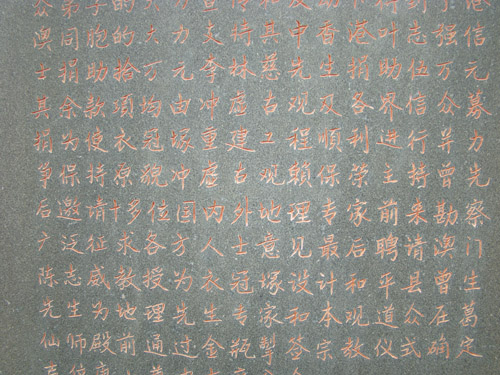 澳同胞的大力支持其中香港叶志强信
士捐助拾万元李林慈先生捐助伍万元
其余款項均由冲虛古观及各界信众募
捐为使衣冠塚重建工程順利进行并力
保将原貌冲虛古观賴保荣主持曾先
后邀请十多位国内外地理专家前来勘察
广泛征求各方人士意见最后聘请澳门
陈志威教授为衣冠塚设计和平县曾生
先生为地理先生专家和本观道众在葛
仙师殿前通过金瓶掣签宗教仪式确定